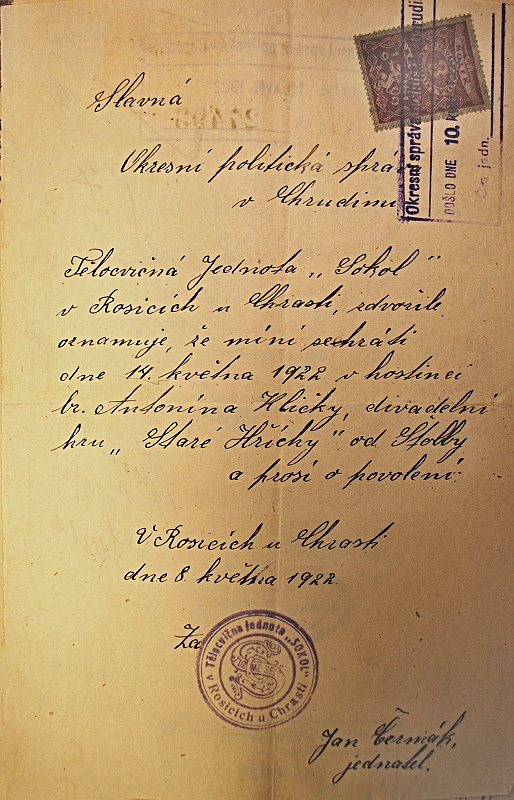 Slavná
Okresní politická správa
v Chrudimi
Tělocvičná Jednota „Sokol“
v Rosicích u Chrasti, zdvořile
oznamuje, že míní sehráti
dne 14. května 1922 v hostinci
br. Antonína Hličky, divadelní
hru „Staré Hříchy“ od Štolby
a prosí o povolení.
V Rosicích u Chrasti
dne 8. května 1922.
Za
Tělocvičná jednota „SOKOL“
v Rosicích u Chrasti
Jan Čermák,
jednatel.
Okresní správa
DOŠLO DNE 10.